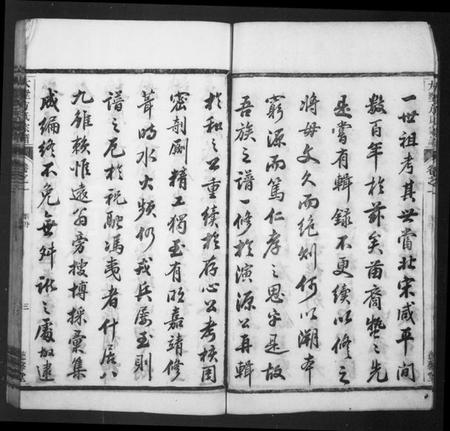 一世祖考其世當北宋咸平間
數百年於茲矣苗裔繁之先
丞嘗有輯錄不更續以修之
將毋文久而絕則何以溯本
窮源而篤仁孝之思乎是故
吾族之譜一修於演源公再輯
於和之公重續於存心公考核周
密剞劂精工獨至有明嘉靖修
葺時水火頻仍戎兵屢至則
譜之厄於祝融馮夷者什居八
九雖款惟遠公旁搜博採彙集
成編終不免無舛訛之處加速
三